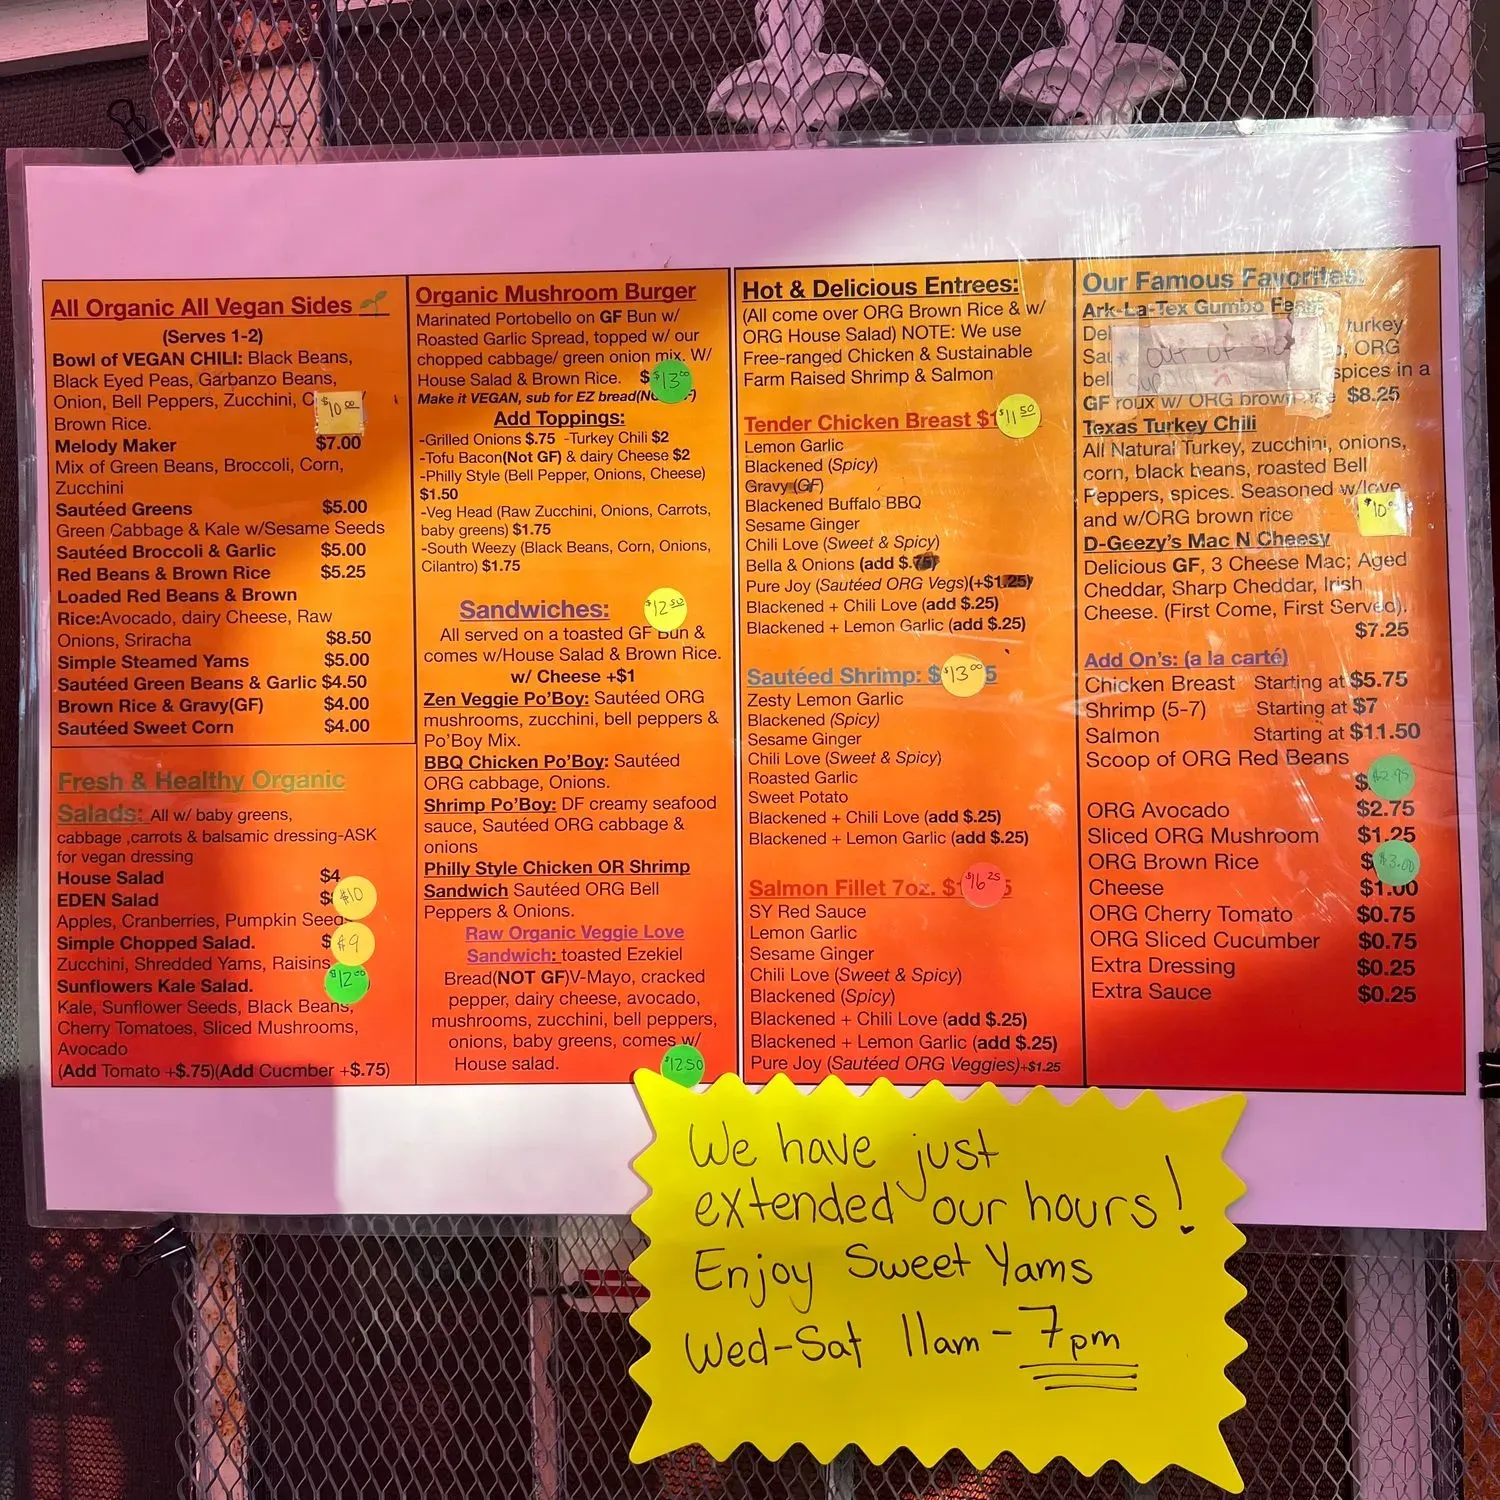 All Organic All Vegan Sides
(Serves 1-2)
Bowl of VEGAN CHILI: Black Beans,
Black Eyed Peas, Garbanzo Beans,
Onion, Bell Peppers, Zucchini,
$10.00
Brown Rice.
Melody Maker $7.00
Mix of Green Beans, Broccoli, Corn,
Zucchini
Sautéed Greens $5.00
Green Cabbage & Kale w/Sesame Seeds
Sautéed Broccoli & Garlic $5.00
Red Beans & Brown Rice $5.25
Loaded Red Beans & Brown
Rice:Avocado, dairy Cheese, Raw
Onions, Sriracha $8.50
Simple Steamed Yams $5.00
Sautéed Green Beans & Garlic $4.50
Brown Rice & Gravy(GF) $4.00
Sautéed Sweet Corn $4.00
Fresh & Healthy Organic
Salads: All w/ baby greens,
cabbage ,carrots & balsamic dressing-ASK
for vegan dressing
House Salad $4
EDEN Salad $10
Apples, Cranberries, Pumpkin Seeds
Simple Chopped Salad. $9
Zucchini, Shredded Yams, Raisins
Sunflowers Kale Salad. $12.00
Kale, Sunflower Seeds, Black Beans,
Cherry Tomatoes, Sliced Mushrooms,
Avocado
(Add Tomato +$.75)(Add Cucmber +$.75)
Organic Mushroom Burger
Marinated Portobello on GF Bun w/
Roasted Garlic Spread, topped w/ our
chopped cabbage/ green onion mix. W/
House Salad & Brown Rice. $13.00
Make it VEGAN, sub for EZ bread
Add Toppings:
-Grilled Onions $.75 -Turkey Chili $2
-Tofu Bacon(Not GF) & dairy Cheese $2
-Philly Style (Bell Pepper, Onions, Cheese)
$1.50
-Veg Head (Raw Zucchini, Onions, Carrots,
baby greens) $1.75
-South Weezy (Black Beans, Corn, Onions,
Cilantro) $1.75
Sandwiches: $12.50
All served on a toasted GF Bun &
comes w/House Salad & Brown Rice.
w/ Cheese +$1
Zen Veggie Po'Boy: Sautéed ORG
mushrooms, zucchini, bell peppers &
Po'Boy Mix.
BBQ Chicken Po'Boy: Sautéed
ORG cabbage, Onions.
Shrimp Po'Boy: DF creamy seafood
sauce, Sautéed ORG cabbage &
onions
Philly Style Chicken OR Shrimp
Sandwich Sautéed ORG Bell
Peppers & Onions.
Raw Organic Veggie Love
Sandwich: toasted Ezekiel
Bread(NOT GF)V-Mayo, cracked
pepper, dairy cheese, avocado,
mushrooms, zucchini, bell peppers,
onions, baby greens, comes w/
House salad.
$12.50
Hot & Delicious Entrees:
(All come over ORG Brown Rice & w/
ORG House Salad) NOTE: We use
Free-ranged Chicken & Sustainable
Farm Raised Shrimp & Salmon
Tender Chicken Breast $11.50
Lemon Garlic
Blackened (Spicy)
Gravy (GF)
Blackened Buffalo BBQ
Sesame Ginger
Chili Love (Sweet & Spicy)
Bella & Onions (add $.75)
Pure Joy (Sautéed ORG Vegs)(+$1.25)
Blackened + Chili Love (add $.25)
Blackened + Lemon Garlic (add $.25)
Sautéed Shrimp: $13.00
Zesty Lemon Garlic
Blackened (Spicy)
Sesame Ginger
Chili Love (Sweet & Spicy)
Roasted Garlic
Sweet Potato
Blackened + Chili Love (add $.25)
Blackened + Lemon Garlic (add $.25)
Salmon Fillet 7oz. $16.25
SY Red Sauce
Lemon Garlic
Sesame Ginger
Chili Love (Sweet & Spicy)
Blackened (Spicy)
Blackened + Chili Love (add $.25)
Blackened + Lemon Garlic (add $.25)
Pure Joy (Sautéed ORG Veggies)+$1.25
Our Famous Favorites:
Ark-La-Tex Gumbo
turkey
out of ORG
spices in a
GF roux w/ ORG brown rice $8.25
Texas Turkey Chili
All Natural Turkey, zucchini, onions,
corn, black beans, roasted Bell
Peppers, spices. Seasoned w/love
and w/ORG brown rice
D-Geezy's Mac N Cheesy
Delicious GF, 3 Cheese Mac; Aged
Cheddar, Sharp Cheddar, Irish
Cheese. (First Come, First Served).
$7.25
Add On's: (a la carté)
Chicken Breast Starting at $5.75
Shrimp (5-7) Starting at $7
Salmon Starting at $11.50
Scoop of ORG Red Beans
$2.95
ORG Avocado $2.75
Sliced ORG Mushroom $1.25
ORG Brown Rice $3.00
Cheese $1.00
ORG Cherry Tomato $0.75
ORG Sliced Cucumber $0.75
Extra Dressing $0.25
Extra Sauce $0.25
We have just
extended our hours!
Enjoy Sweet Yams
Wed-Sat 11am-7pm